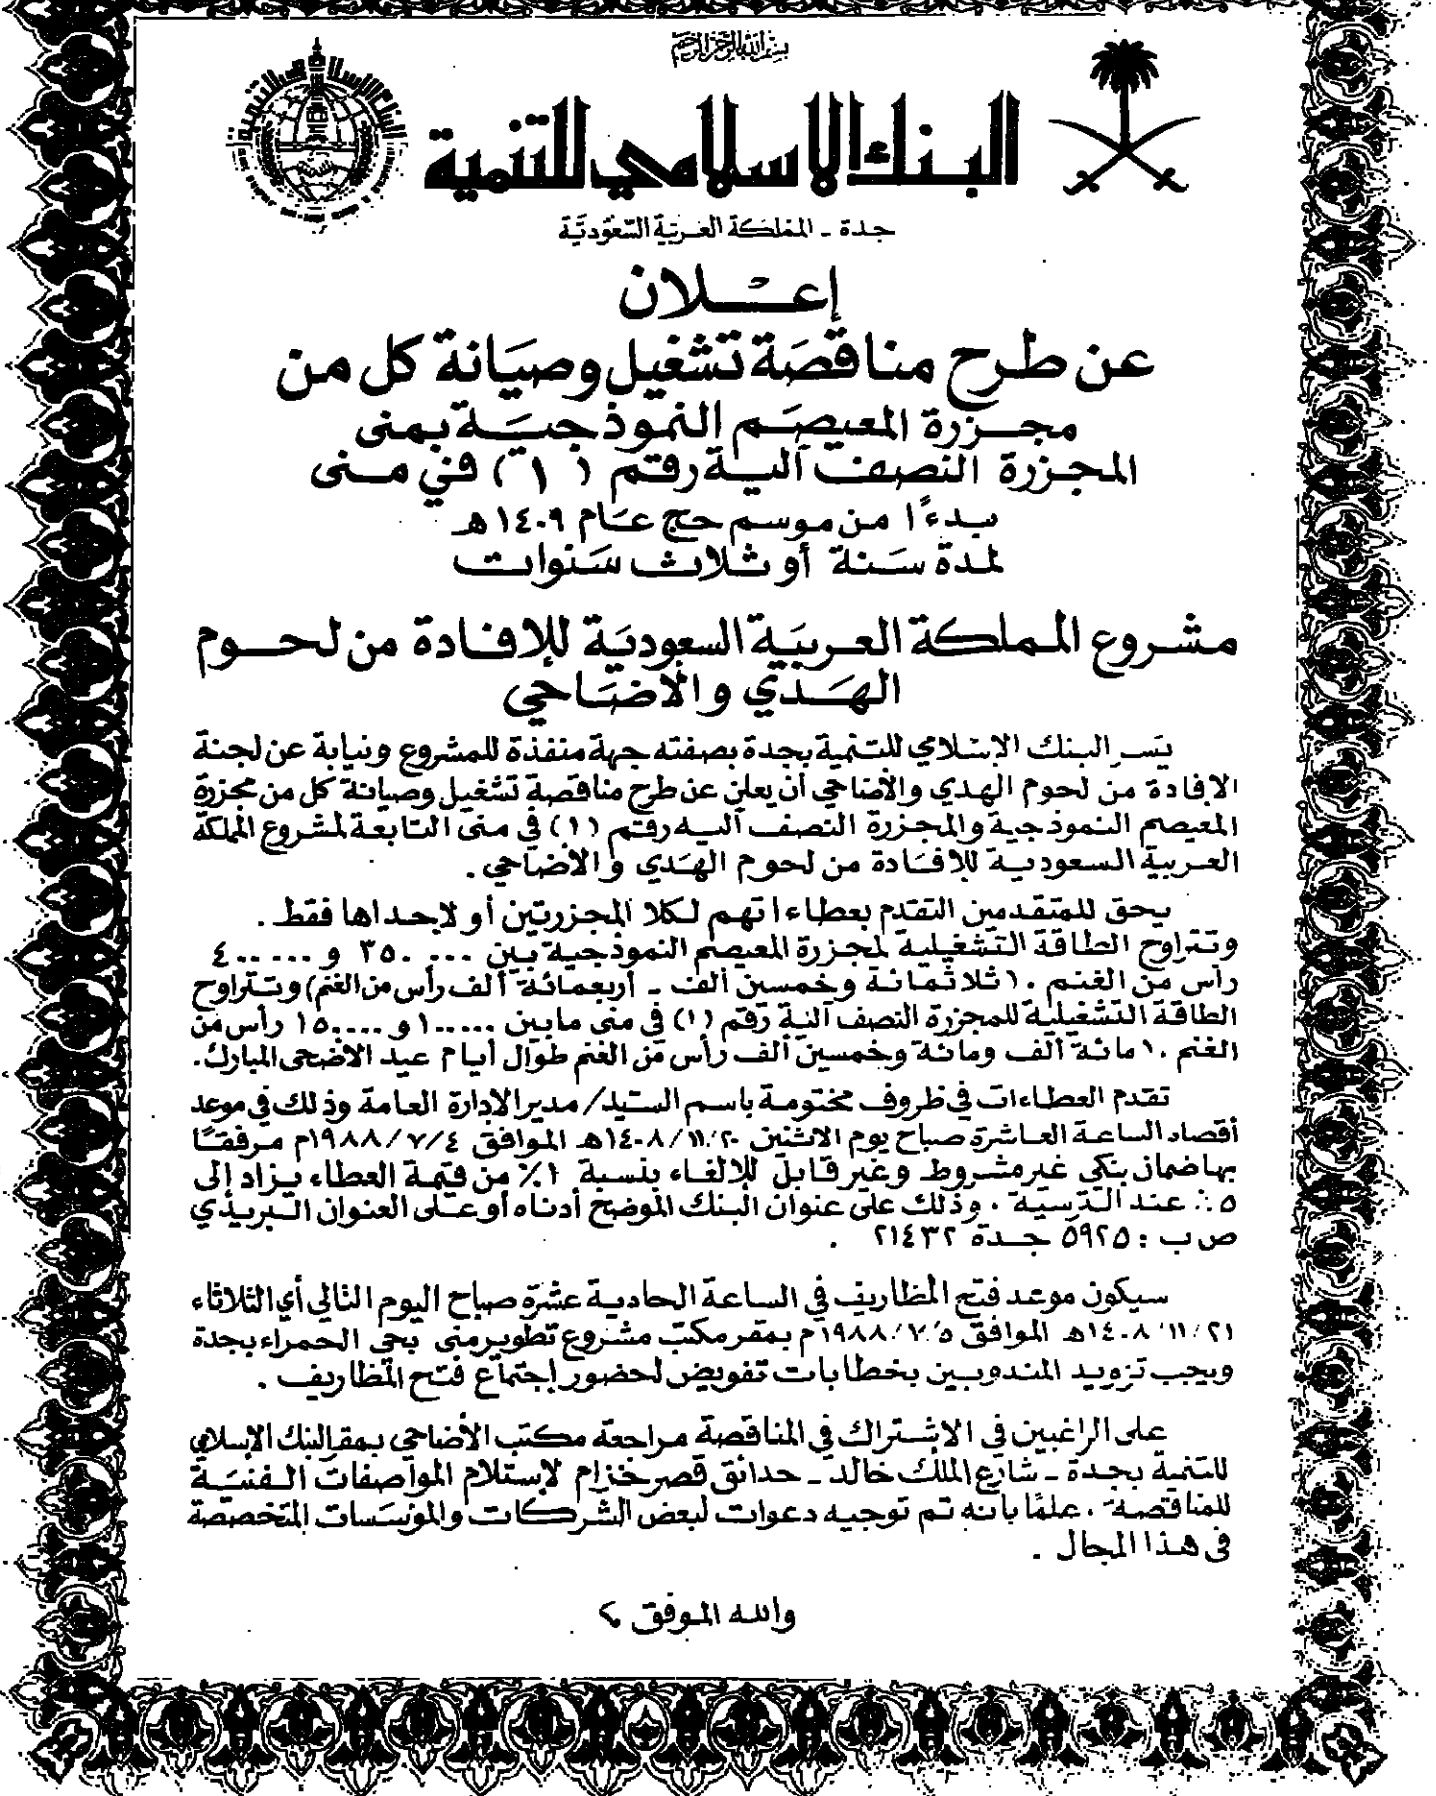 بسم الله الرحمن الرحيم
البنك الإسلامي للتنمية
البنك الاسلامي للتنمية
جدة - المملكة العربية السعودية
إعلان
عن طرح مناقصة تشغيل وصيانة كل من
مجزرة المعيصم النموذجية بمنى
المجزرة النصف آلية رقم (١) في منى
بدءًا من موسم حج عام ١٤٠٩هـ
لمدة سنة أو ثلاث سنوات
مشروع المملكة العربية السعودية للإفادة من لحوم
الهدي والأضاحي
يسر البنك الإسلامي للتنمية بجدة بصفته جهة منفذة للمشروع ونيابة عن لجنة
الافادة من لحوم الهدي والأضاحي أن يعلن عن طرح مناقصة تشغيل وصيانة كل من مجزرة
المعيصم النموذجية والمجزرة النصف آلية رقم (١) في منى التابعة لمشروع المملكة
العربية السعودية للإفادة من لحوم الهدي والأضاحي .
يحق للمتقدمين التقدم بعطاءاتهم لكلا المجزرتين أو لاحداها فقط .
وتتراوح الطاقة التشغيلية لمجزرة المعيصم النموذجية بين ٣٥٠٠٠٠ و ٤٠٠٠٠٠
رأس من الغنم . (ثلاثمائة وخمسين ألف - أربعمائة ألف رأس من الغنم) وتتراوح
الطاقة التشغيلية للمجزرة النصف آلية رقم (١) في منى مابين ١٠٠٠٠٠ و ١٥٠٠٠٠ رأس من
الغنم . (مائة ألف ومائة وخمسين ألف رأس من الغنم طوال أيام عيد الأضحى المبارك.
تقدم العطاءات في ظروف مختومة باسم السيد/ مدير الإدارة العامة وذلك في موعد
أقصاه الساعة العاشرة صباح يوم الاثنين ١٤٠٨/١١/٢٠هـ الموافق ١٩٨٨/٧/٤م مرفقًا
بها ضمان بنكي غير مشروط وغير قابل للإلغاء بنسبة ١٪ من قيمة العطاء يزاد إلى
٥٪ عند الترسية . وذلك على عنوان البنك الموضح أدناه أو على العنوان البريدي
ص ب : ٥٩٢٥ جدة ٢١٤٣٢ .
سيكون موعد فتح المظاريف في الساعة الحادية عشرة صباح اليوم التالي أي الثلاثاء
١٤٠٨/١١/٢١هـ الموافق ١٩٨٨/٧/٥م بمقر مكتب مشروع تطوير منى بحي الحمراء بجدة
ويجب تزويد المندوبين بخطابات تفويض لحضور إجتماع فتح المظاريف .
على الراغبين في الاشتراك في المناقصة مراجعة مكتب الأضاحي بمقر البنك الإسلامي
للتنمية بجدة - شارع الملك خالد - حدائق قصر خزام لإستلام المواصفات الفنية
للمناقصة . علمًا بانه تم توجيه دعوات لبعض الشركات والمؤسسات المتخصصة
في هذا المجال .
والله الموفق